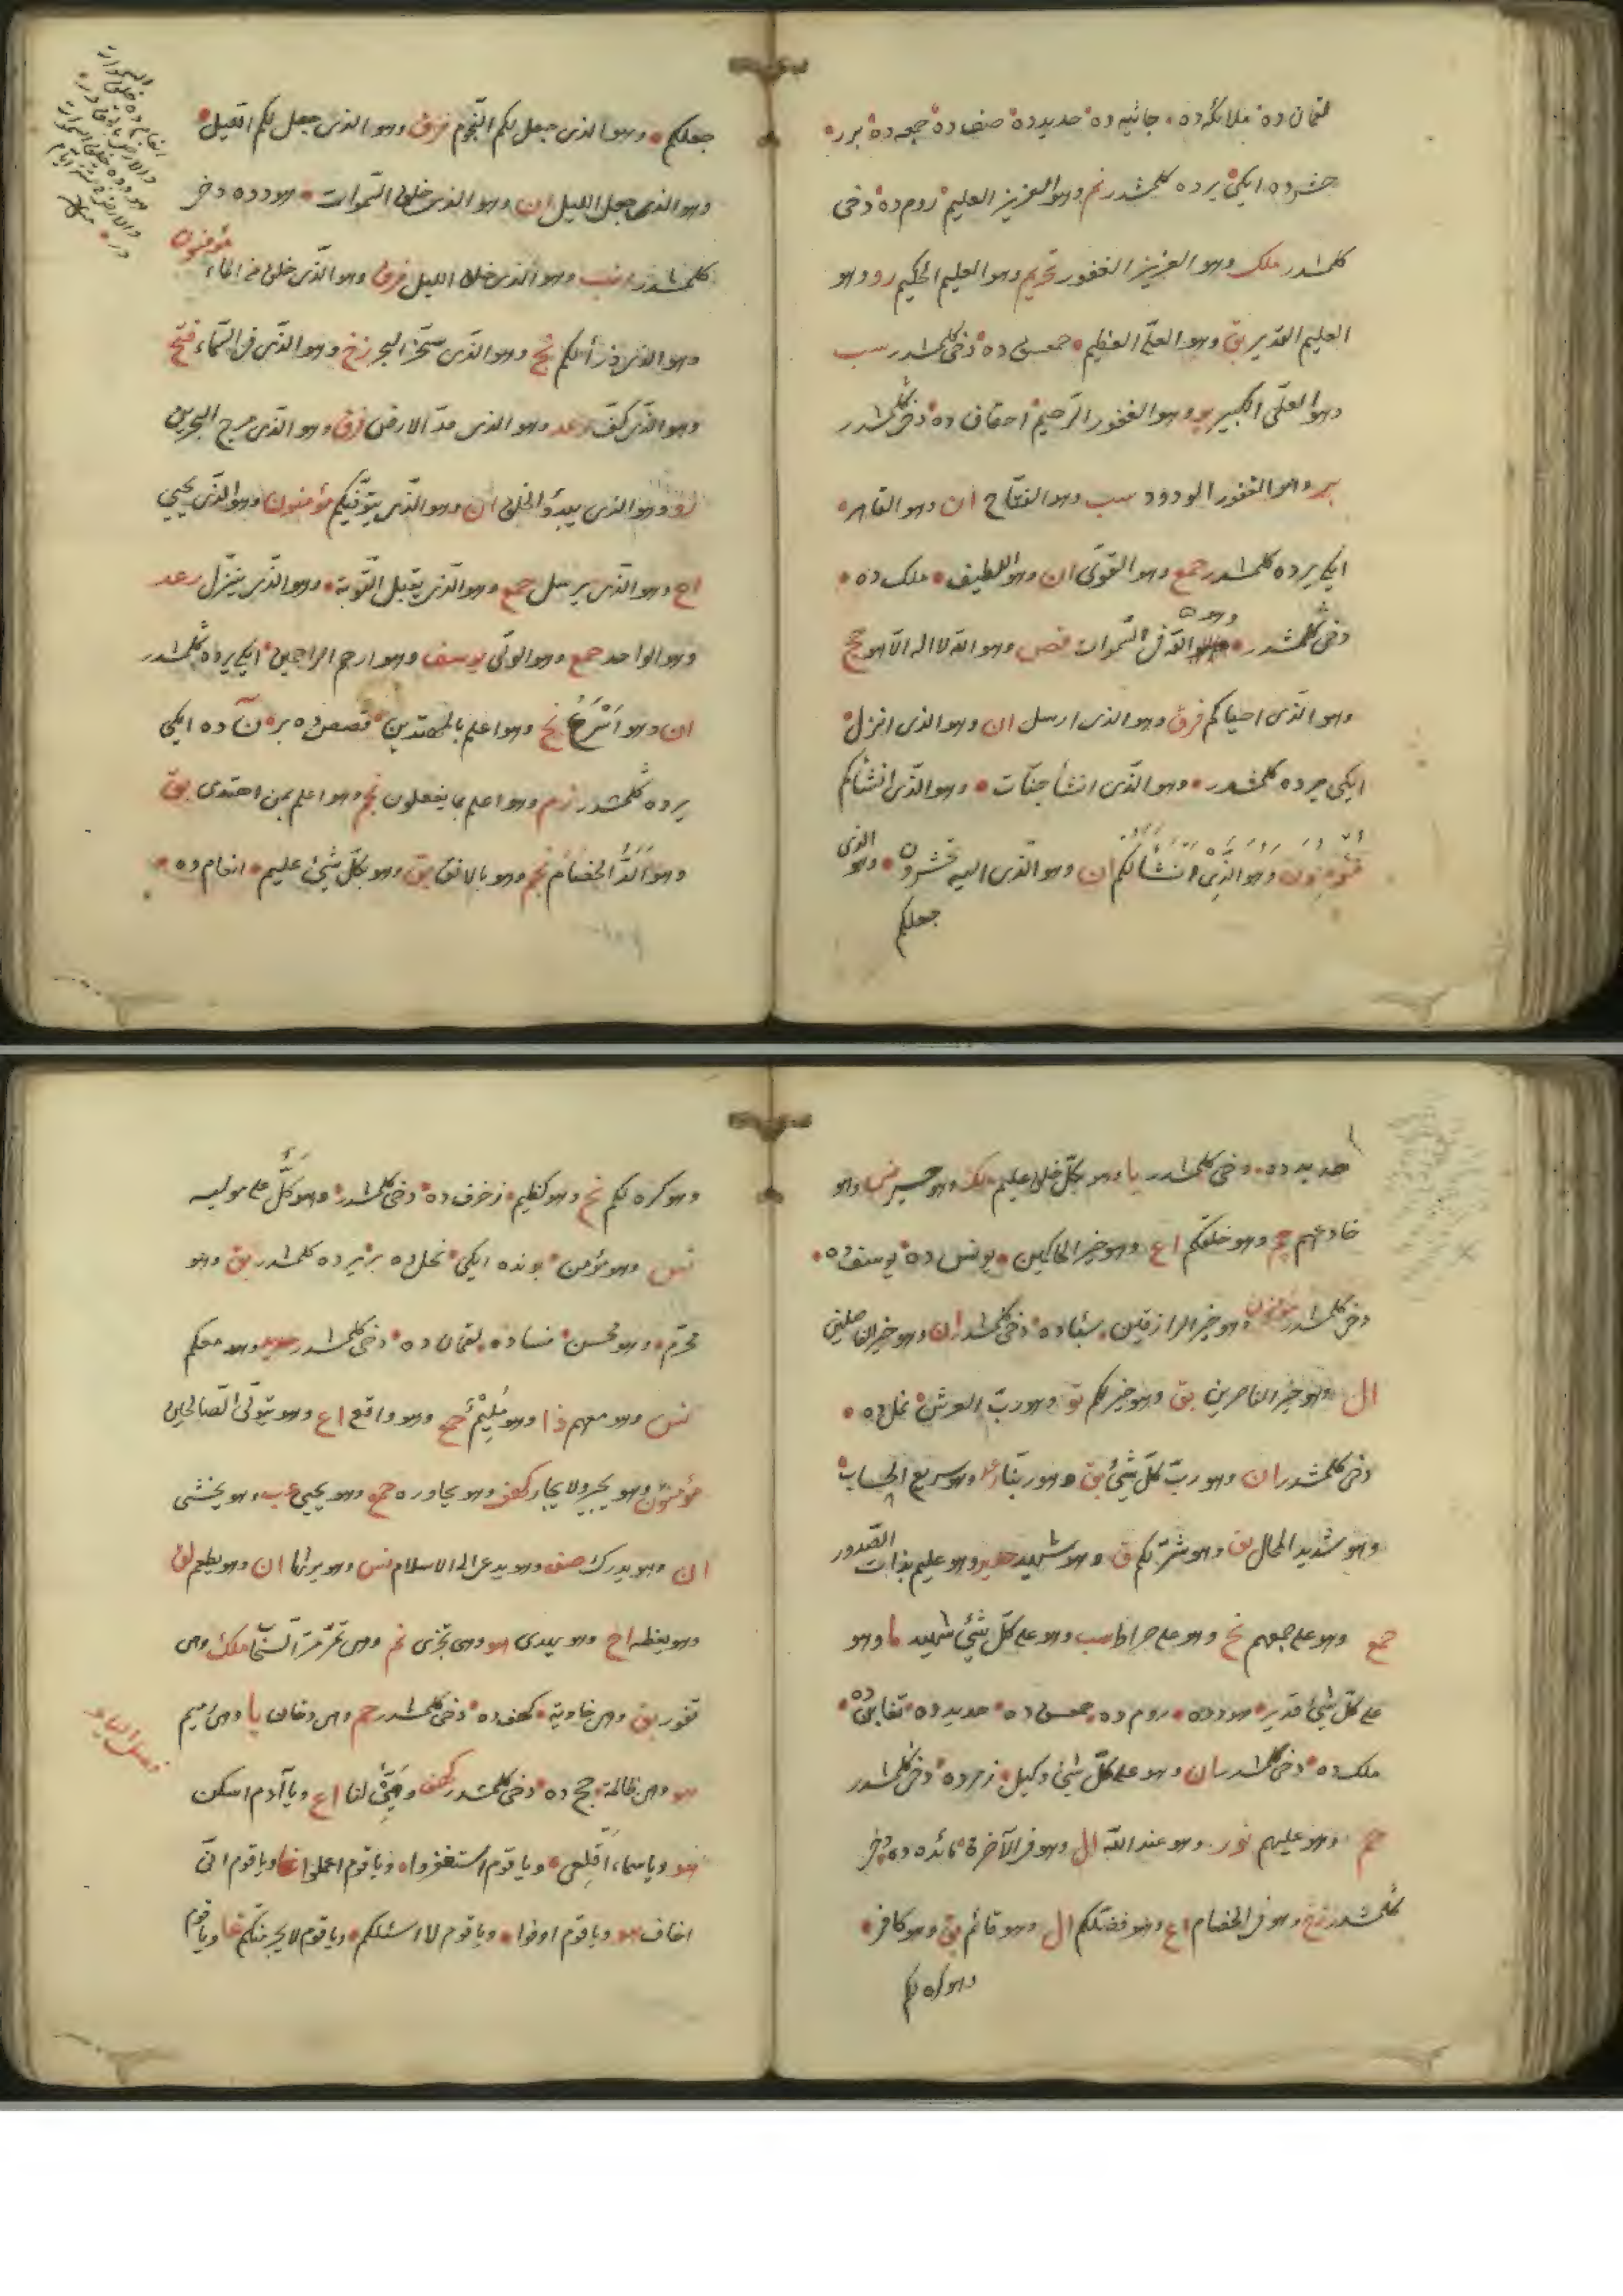 لقمان ده ملائكه ده جاثيه ده حديد ده صف ده جمعه ده برر
حشرده ايكى يرده كلمشدر نم وهو العزيز العليم روم ده دخى
كلمشدر ملك وهو العزيز الغفور تحريم وهو العليم الحكيم رو وهو
العليم القدير بق وهو العلى العظيم حمعسق ده دخى كلمشدر سب
وهو العلى الكبير يو وهو الغفور الرحيم احقاف ده دخى كلمشدر
بر وهو الغفور الودود سب وهو الفتاح ان وهو القاهر
ايكى يرده كلمشدر حمع وهو القوى ان وهو اللطيف ملك ده
دخى كلمشدر وهو الله فى السموات قصص وهو الله لا اله الا هو حج
وهو الذى احياكم فرق وهو الذى ارسل ان وهو الذى انزل
ايكى يرده كلمشدر وهو الذى انشأ جنات وهو الذى انشأكم
مؤمنون وهو الذى انشأ لكم ان وهو الذى اليه تحشرون وهو الذى
جعلكم
جعلكم وهو الذى جعل لكم النجوم فرق وهو الذى جعل لكم الليل
وهو الذى جعل الليل ان وهو الذى خلق السموات هودده دخى
كلمشدر انب وهو الذى خلق الليل فرق وهو الذى خلق من الماء مؤمنون
وهو الذى ذرأ لكم نح وهو الذى سخر البحر زخ وهو الذى فى السماء فتح
وهو الذى كف رعد وهو الذى مد الارض فرق وهو الذى مرج البحرين
رو وهو الذى يبدؤا الخلق ان وهو الذى يتوفيكم مؤمنون وهو الذى يحيى
اع وهو الذى يرسل حمع وهو الذى يقبل التوبة وهو الذى ينزل رعد
وهو الواحد حمع وهو الولى يوسف وهو ارحم الراحمين ايكى يرده كلمشدر
ان وهو اسرع نح وهو اعلم بالمهتدين قصص ده بر ن ده ايكى
يرده كلمشدر زم وهو اعلم بما يفعلون نجم وهو اعلم بمن اهتدى بق
وهو الد الخصام نجم وهو بالافق بق وهو بكل شئ عليم انعام ده
حديد ده دخى كلمشدر يا وهو بكل خلق عليم ملك وهو حسير نسا وهو
خادعهم وهو خلقكم اع وهو خير الحاكمين يونس ده يوسف ده
دخى كلمشدر مؤمنون وهو خير الرازقين سباده دخى كلمشدر ان وهو خير الفاصلين
ال وهو خير الناصرين بق وهو خير لكم تو وهو رب العرش نمل ده
دخى كلمشدر ان وهو رب كل شئ بق وهو ربنا رعد وهو سريع الحساب
وهو شديد المحال بق وهو شر لكم ق وهو شهيد حديد وهو عليم بذات الصدور
حمع وهو على جمعهم نح وهو على صراط سب وهو على كل شئ شهيد ما وهو
على كل شئ قدير هودده روم ده حمعسق ده حديد ده تغابن ده
ملك ده دخى كلمشدر ان وهو على كل شئ وكيل زمرده دخى كلمشدر
حم وهو عليهم نور وهو عند الله ال وهو فى الآخرة مائده ده دخى
كلمشدر زخ وهو فى الخصام اع وهو فضلكم ال وهو قائم بق وهو كافر
وهو كره لكم
وهو كره لكم نح وهو كظيم زخرف ده دخى كلمشدر وهو كل على موليه
نس وهو مؤمن بونده ايكى نحل ده بر يرده كلمشدر بق وهو
محرم وهو محسن نساده لقمان ده دخى كلمشدر حديد وهو معكم
نس وهو معهم ذا وهو مليم حج وهو واقع اع وهو يتولى الصالحين
مؤمنون وهو يجير ولا يجار كهف وهو يحاوره حمع وهو يحيى عب وهو يخشى
ان وهو يدرك صف وهو يدعى الى الاسلام نس وهو يرثها ان وهو يطعم لق
وهو يعظه اح وهو يهدى هو وهى تجرى نم وهى تمر مر السحاب ملك وهى
تفور بق وهى خاوية كهف ده دخى كلمشدر حم وهى دخان يا وهى رميم
هو وهى ظالمة حج ده دخى كلمشدر كهف وهيئ لنا اع ويا آدم اسكن
هو ويا سماء اقلعى ويا قوم استغفروا ويا قوم اعملوا غا ويا قوم انى
اخاف هو ويا قوم اوفوا ويا قوم لا اسئلكم ويا قوم لا يجرمنكم غا ويا قوم